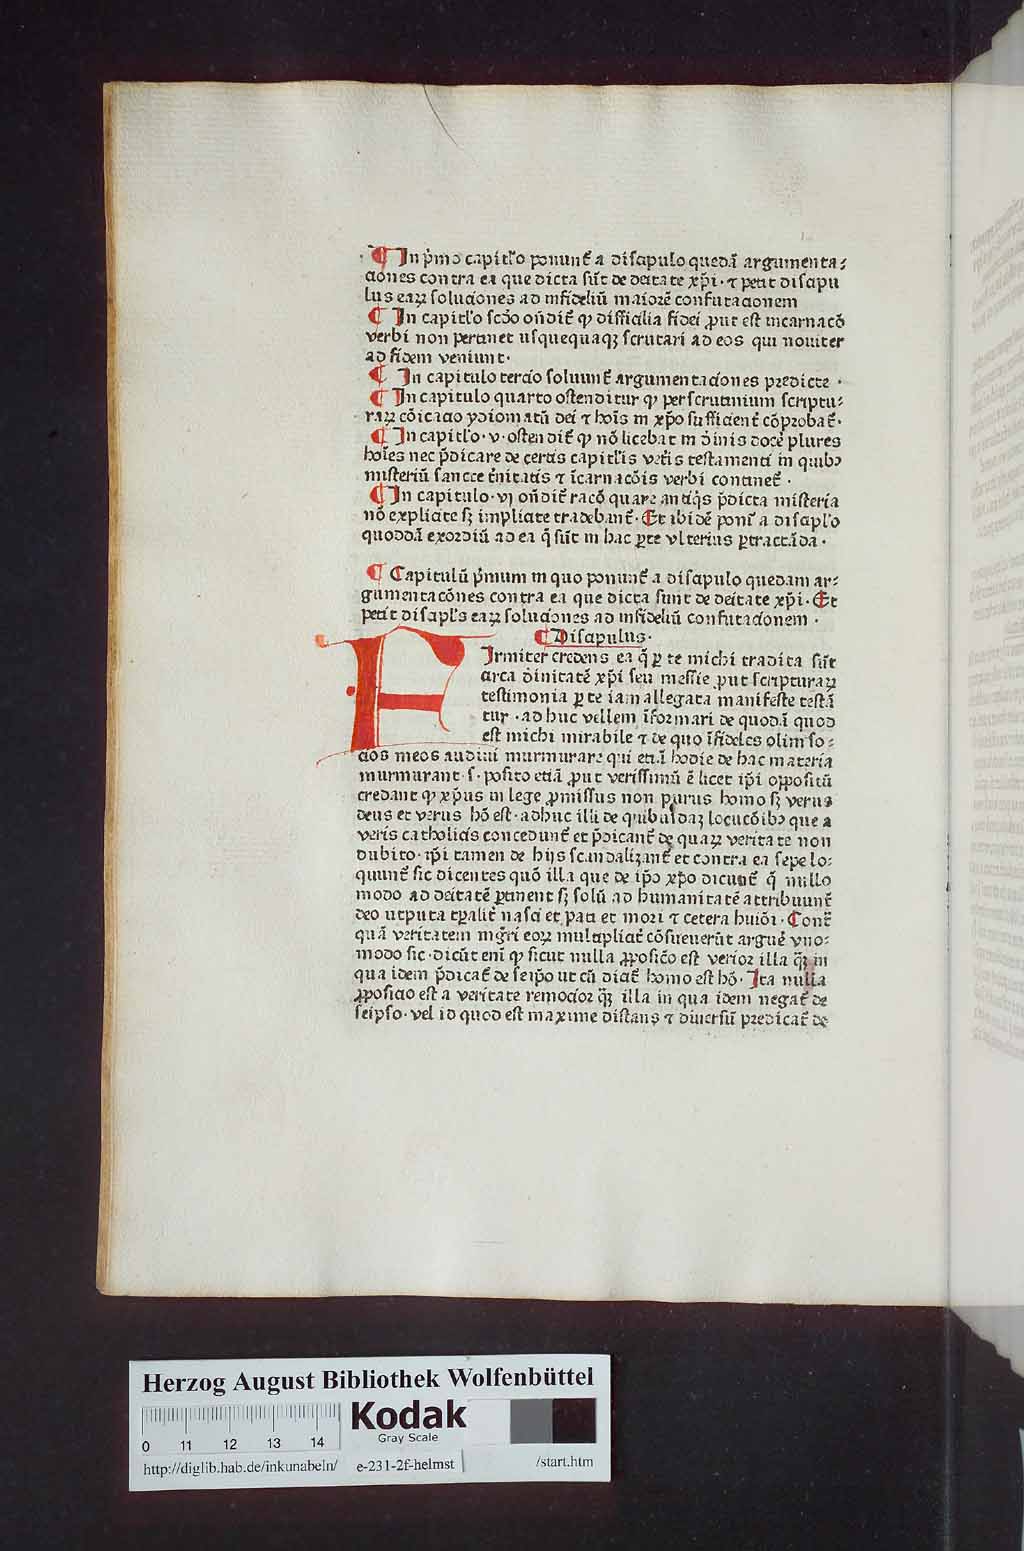 ¶ In p̄mo capitl'o ponunt̄ a discipulo quedā argumenta⸗
ciones contra ea que dicta sūt de deitate xp̄i · ⁊ petit discipu
lus eaꝝ soluciones ad infideliū maiorē confutacionem
¶ In capitl'o scd̄o ondit̄ ꝙ difficilia fidei ꝓut est incarnacō
verbi non pertinet usquequaqꝫ scrutari ad eos qui noviter
ad fidem veniunt·
¶ In capitulo tercio soluunt̄ argumentaciones predicte ·
¶ In capitulo quarto ostenditur ꝙ per scrutinium scriptu⸗
raꝝ cōicacio ydiomatū dei ⁊ hoīs in xp̄o sufficient̄ cōprobat̄·
¶ In capitl'o · v · ostendit̄ ꝙ nō licebat in d̄inis docer̄ plures
hoīes nec p̄dicare de certis capitl'is vet̄is testamenti in quibꝫ
misteriū sancte t̄nitatis ⁊ īcarnacōis verbi continet̄ ·
¶ In capitulo · vj ondit̄ racō quare antiq̄s p̄dicta misteria
nō explicite sꝫ implicite tradebant̄ · Et ibidē ponit̄ a discipl'o
quoddā exordiū ad ea q̄ sūt in hac ꝑte vlterius ꝑtractāda ·
¶ Capitulū p̄mum in quo ponunt̄ a discipulo quedam ar⸗
gumentacōnes contra ea que dicta sunt de deitate xp̄i · Et
petit discipl's eaꝝ soluciones ad infideliū confutacionem ·
¶ Discipulus·
FIrmiter credens ea q̄ ꝑ te michi tradita sūt
circa d̄initatē xp̄i seu messie ꝓut scripturaꝝ
testimonia ꝑ te iam allegata manifeste testā
tur · ad huc vellem īformari de quodā quod
est michi mirabile ⁊ de quo īfideles olim so⸗
cios meos audiui murmurare qui etiā hodie de hac materia
murmurant · s · posito etiā ꝓut verissimū ē licet ip̄i oppositū
credant ꝙ xp̄us in lege ꝓmissus non purus homo sꝫ verus
deus et verus hō est · adhuc illi de quibusdaꝫ locucōibꝫ que a
veris catholicis concedunt̄ et p̄dicant̄ de quaꝝ veritate non
dubito · ip̄i tamen de hijs scandalizant̄ et contra ea sepe lo⸗
quunt̄ sic dicentes quō illa que de ip̄o xp̄o dicunt̄ q̄ nullo
modo ad deitatē ꝑtinent sꝫ solū ad humanitatē attribuunt̄
deo utputa tp̄alit̄ nasci et pati et mori ⁊ cetera huiōi · Cont̄
quā veritatem mgr̄i eoꝝ multiplicit̄ cōsueuerūt arguer̄ vno⸗
modo sic · dicūt enī ꝙ sicut nulla ꝓposicō est verior illa q̄ꝫ in
qua idem p̄dicat̄ de seip̄o ut cū dicit̄ homo est hō · Ita nulla
ꝓposicio est a veritate remocior q̄ꝫ illa in qua idem negat̄ de
seipso · vel id quod est maxime distans ⁊ diuersū predicat̄ de
Herzog August Bibliothek Wolfenbüttel
Kodak
Gray Scale
0 11 12 13 14
http://diglib.hab.de/inkunabeln/ e-231-2f-helmst /start.htm